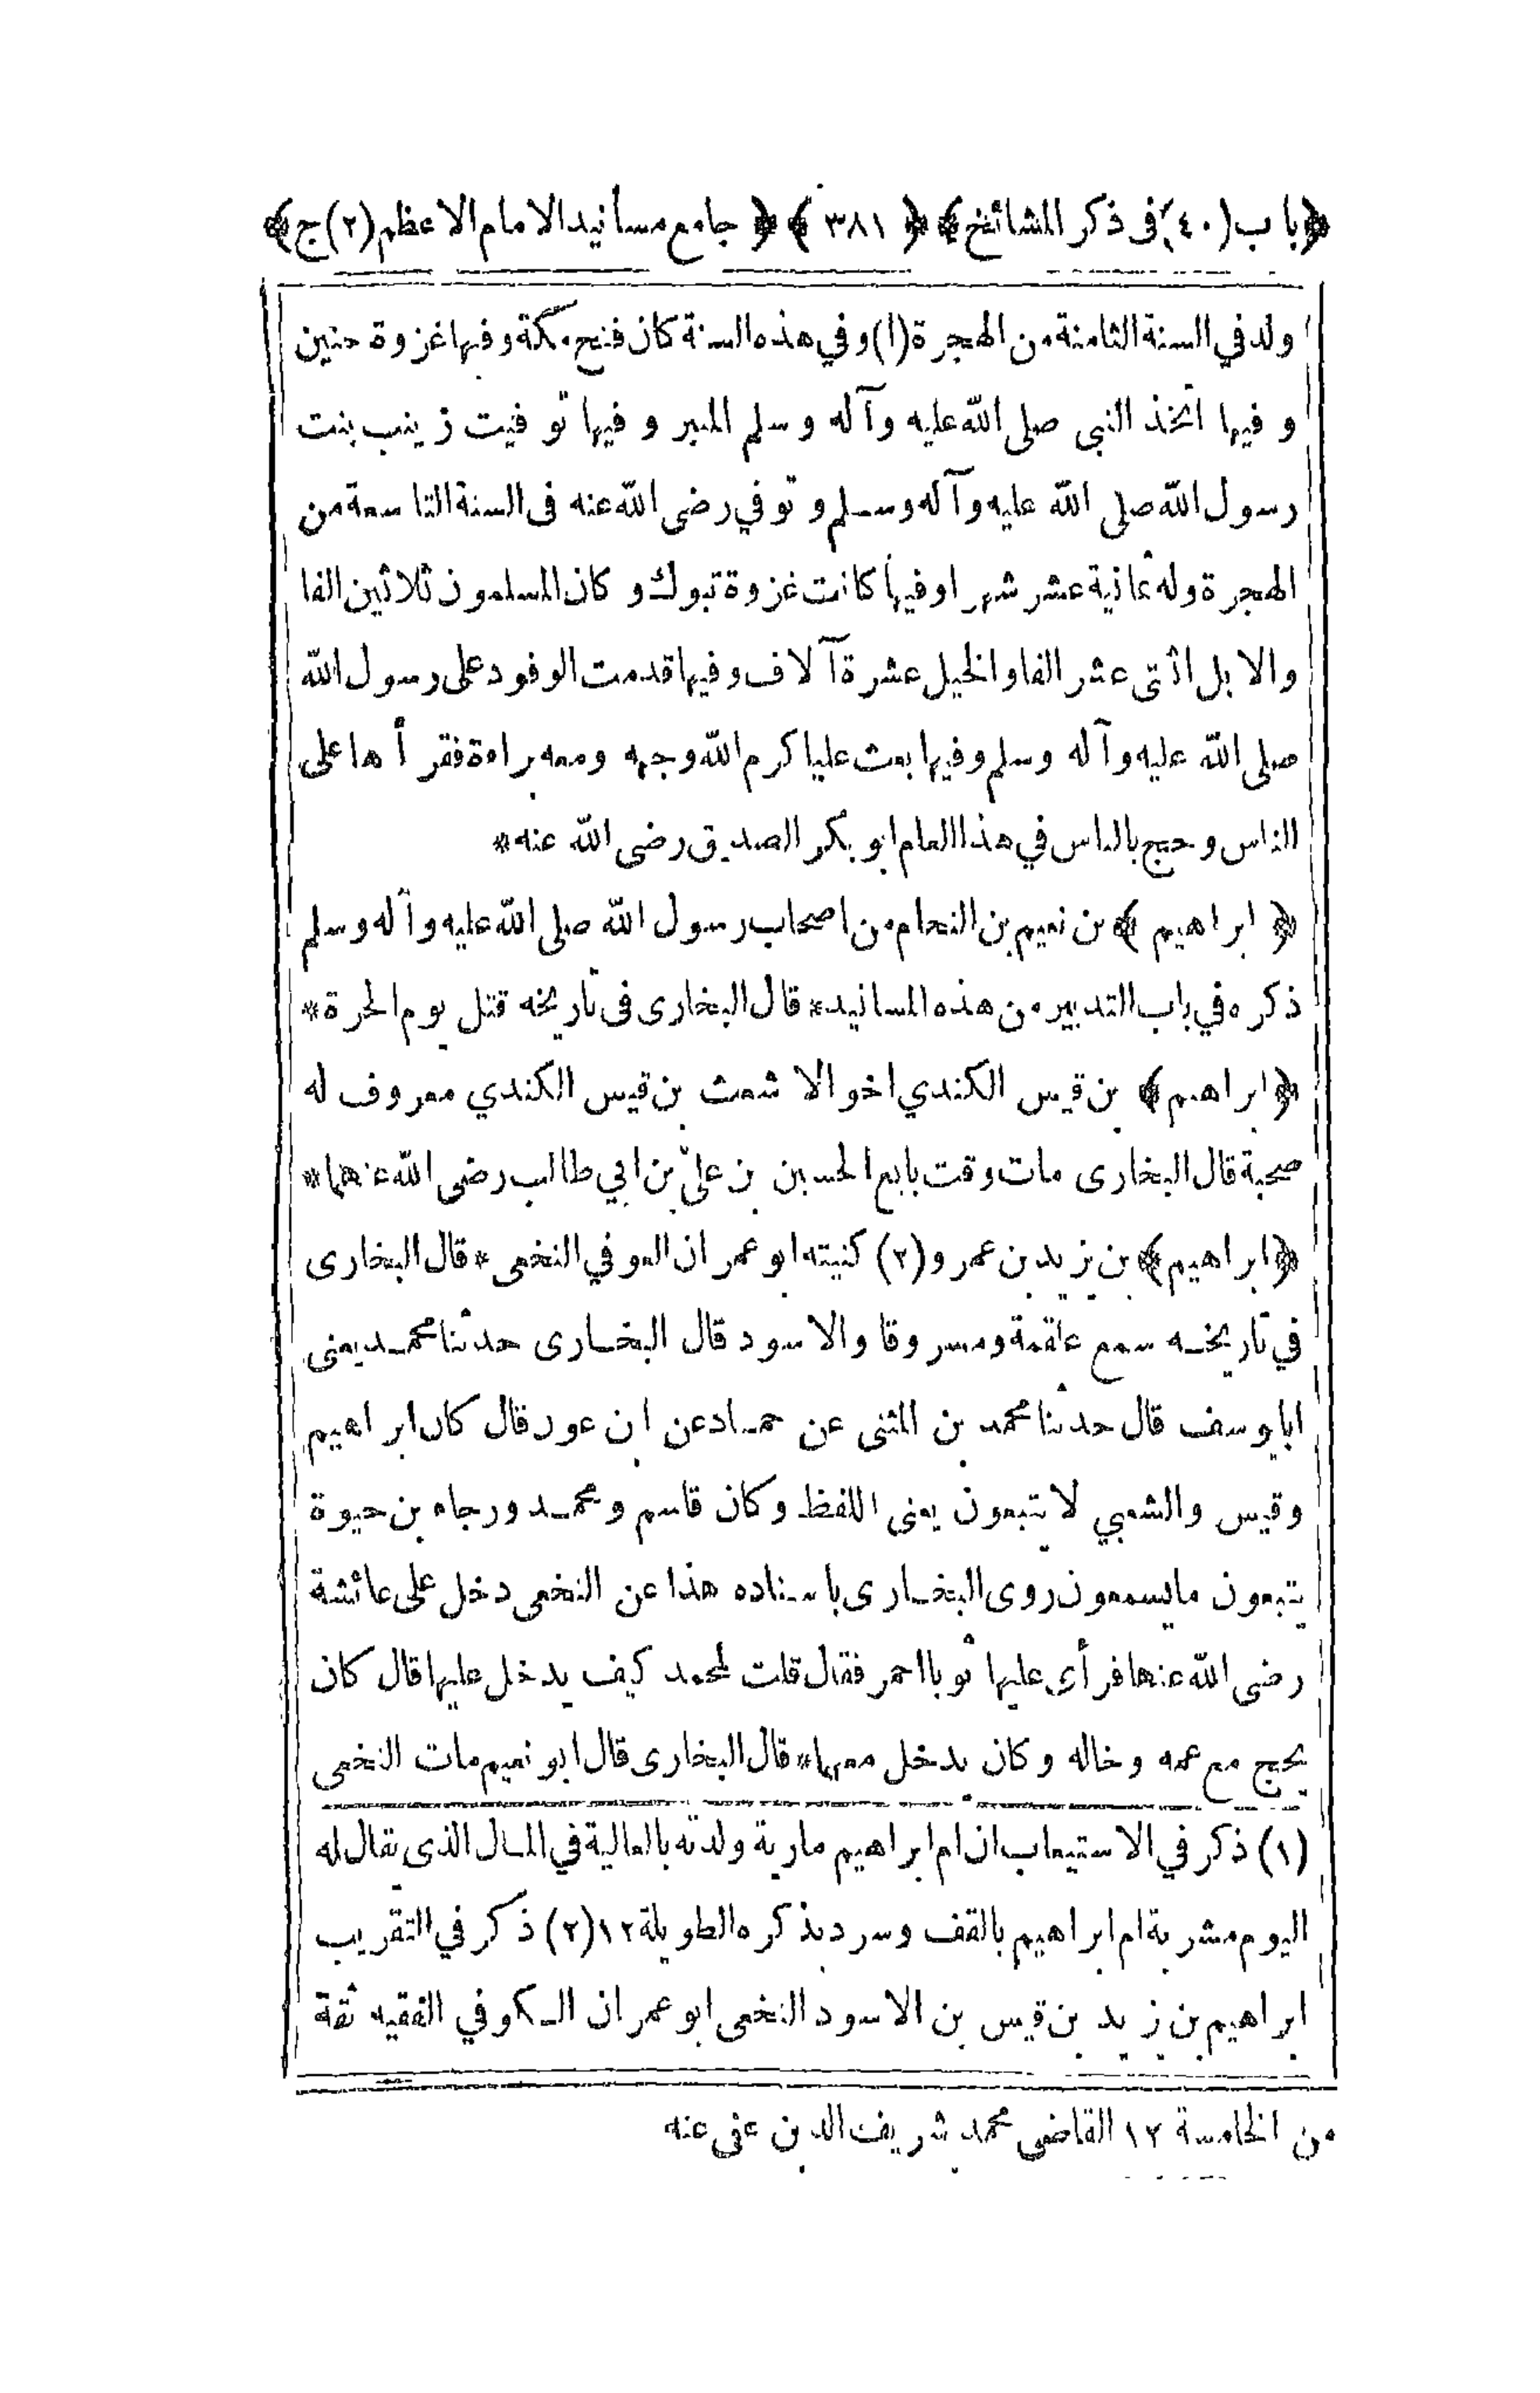 ﴿باب (٤٠) فى ذكر المشائخ﴾ ﴿ ٣٨١ ﴾ ﴿ جامع مسانيد الامام الاعظم (٢) ج﴾
ولد في السنة الثامنة من الهجرة (١) و في هذه السنة كان فتح مكة و فيها غزوة حنين
و فيها اتخذ النبى صلى الله عليه وآله وسلم المنبر و فيها توفيت زينب بنت
رسول الله صلى الله عليه وآله وسلم و توفي رضى الله عنه فى السنة التاسعة من
الهجرة وله ثمانية عشر شهرا وفيها كانت غزوة تبوك و كان المسلمون ثلاثين الفا
والابل اثنى عشر الفا والخيل عشرة آلاف و فيها قدمت الوفود على رسول الله
صلى الله عليه وآله وسلم و فيها بعث عليا كرم الله وجهه ومعه براءة فقرأها على
الناس و حج بالناس في هذا العام ابو بكر الصديق رضى الله عنه*
﴿ ابراهيم ﴾ بن نعيم بن النحام من اصحاب رسول الله صلى الله عليه وآله وسلم
ذكره في باب التدبير من هذه المسانيد* قال البخارى فى تاريخه قتل يوم الحرة*
﴿ابراهيم﴾ بن قيس الكندي اخو الاشعث بن قيس الكندي معروف له
صحبة قال البخارى مات وقت بايع الحسين بن علىّ بن ابي طالب رضى الله عنهما*
﴿ابراهيم﴾ بن يزيد بن عمرو (٢) كنيته ابو عمران العوفي النخعى* قال البخارى
في تاريخه سمع علقمة ومسروقا والاسود قال البخارى حدثنا محمد يعنى
ابا يوسف قال حدثنا محمد بن المثنى عن حماد عن ابن عون قال كان ابراهيم
وقيس والشعبي لا يتبعون يعنى اللفظ و كان قاسم و محمد ورجاء بن حيوة
يتبعون ما يسمعون روى البخارى باسناده هذا عن النخعى دخل على عائشة
رضى الله عنها فرأى عليها ثوبا احمر فقال قلت لمحمد كيف يدخل عليها قال كان
يحج مع عمه وخاله و كان يدخل معهما* قال البخارى قال ابو نعيم مات النخعى
(١) ذكر في الاستيعاب ان ام ابراهيم مارية ولدته بالعالية في المال الذى يقال له
اليوم مشربة ام ابراهيم بالقف وسرد بذكره الطويلة ١٢ (٢) ذكر في التقريب
ابراهيم بن يزيد بن قيس بن الاسود النخعى ابو عمران الكوفي الفقيه ثقة
من الخامسة ١٢ القاضى محمد شريف الدين عفى عنه